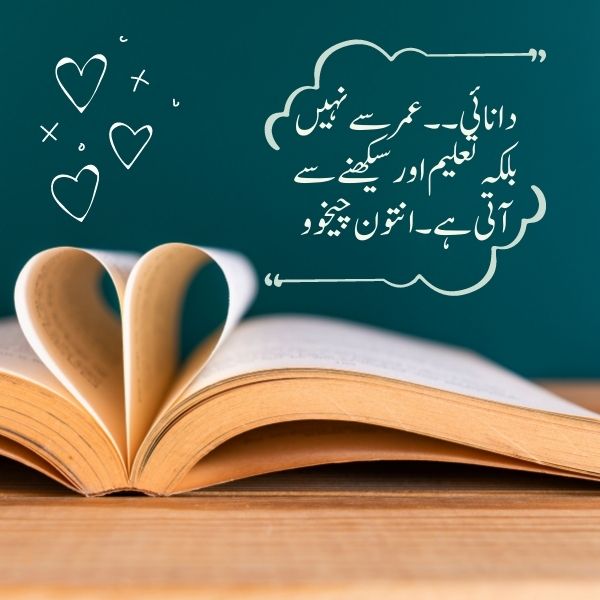 دانائی۔۔عمر سے نہیں
بلکہ تعلیم اور سیکھنے سے
آتی ہے۔انتون چیخوو